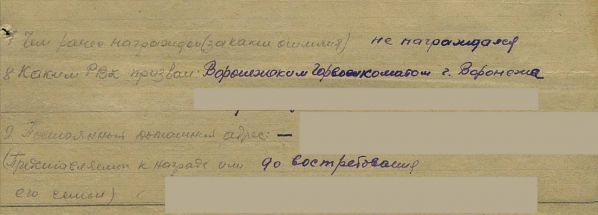 7 Чем ранее награжден (за какие отличия) не награждался
8 Каким РВК призван: Ворошежским Горвоенкоматом г. Воронежа
9. Постоянный домашний адрес: —
(Представляемого к награде или до востребования
его семьи)